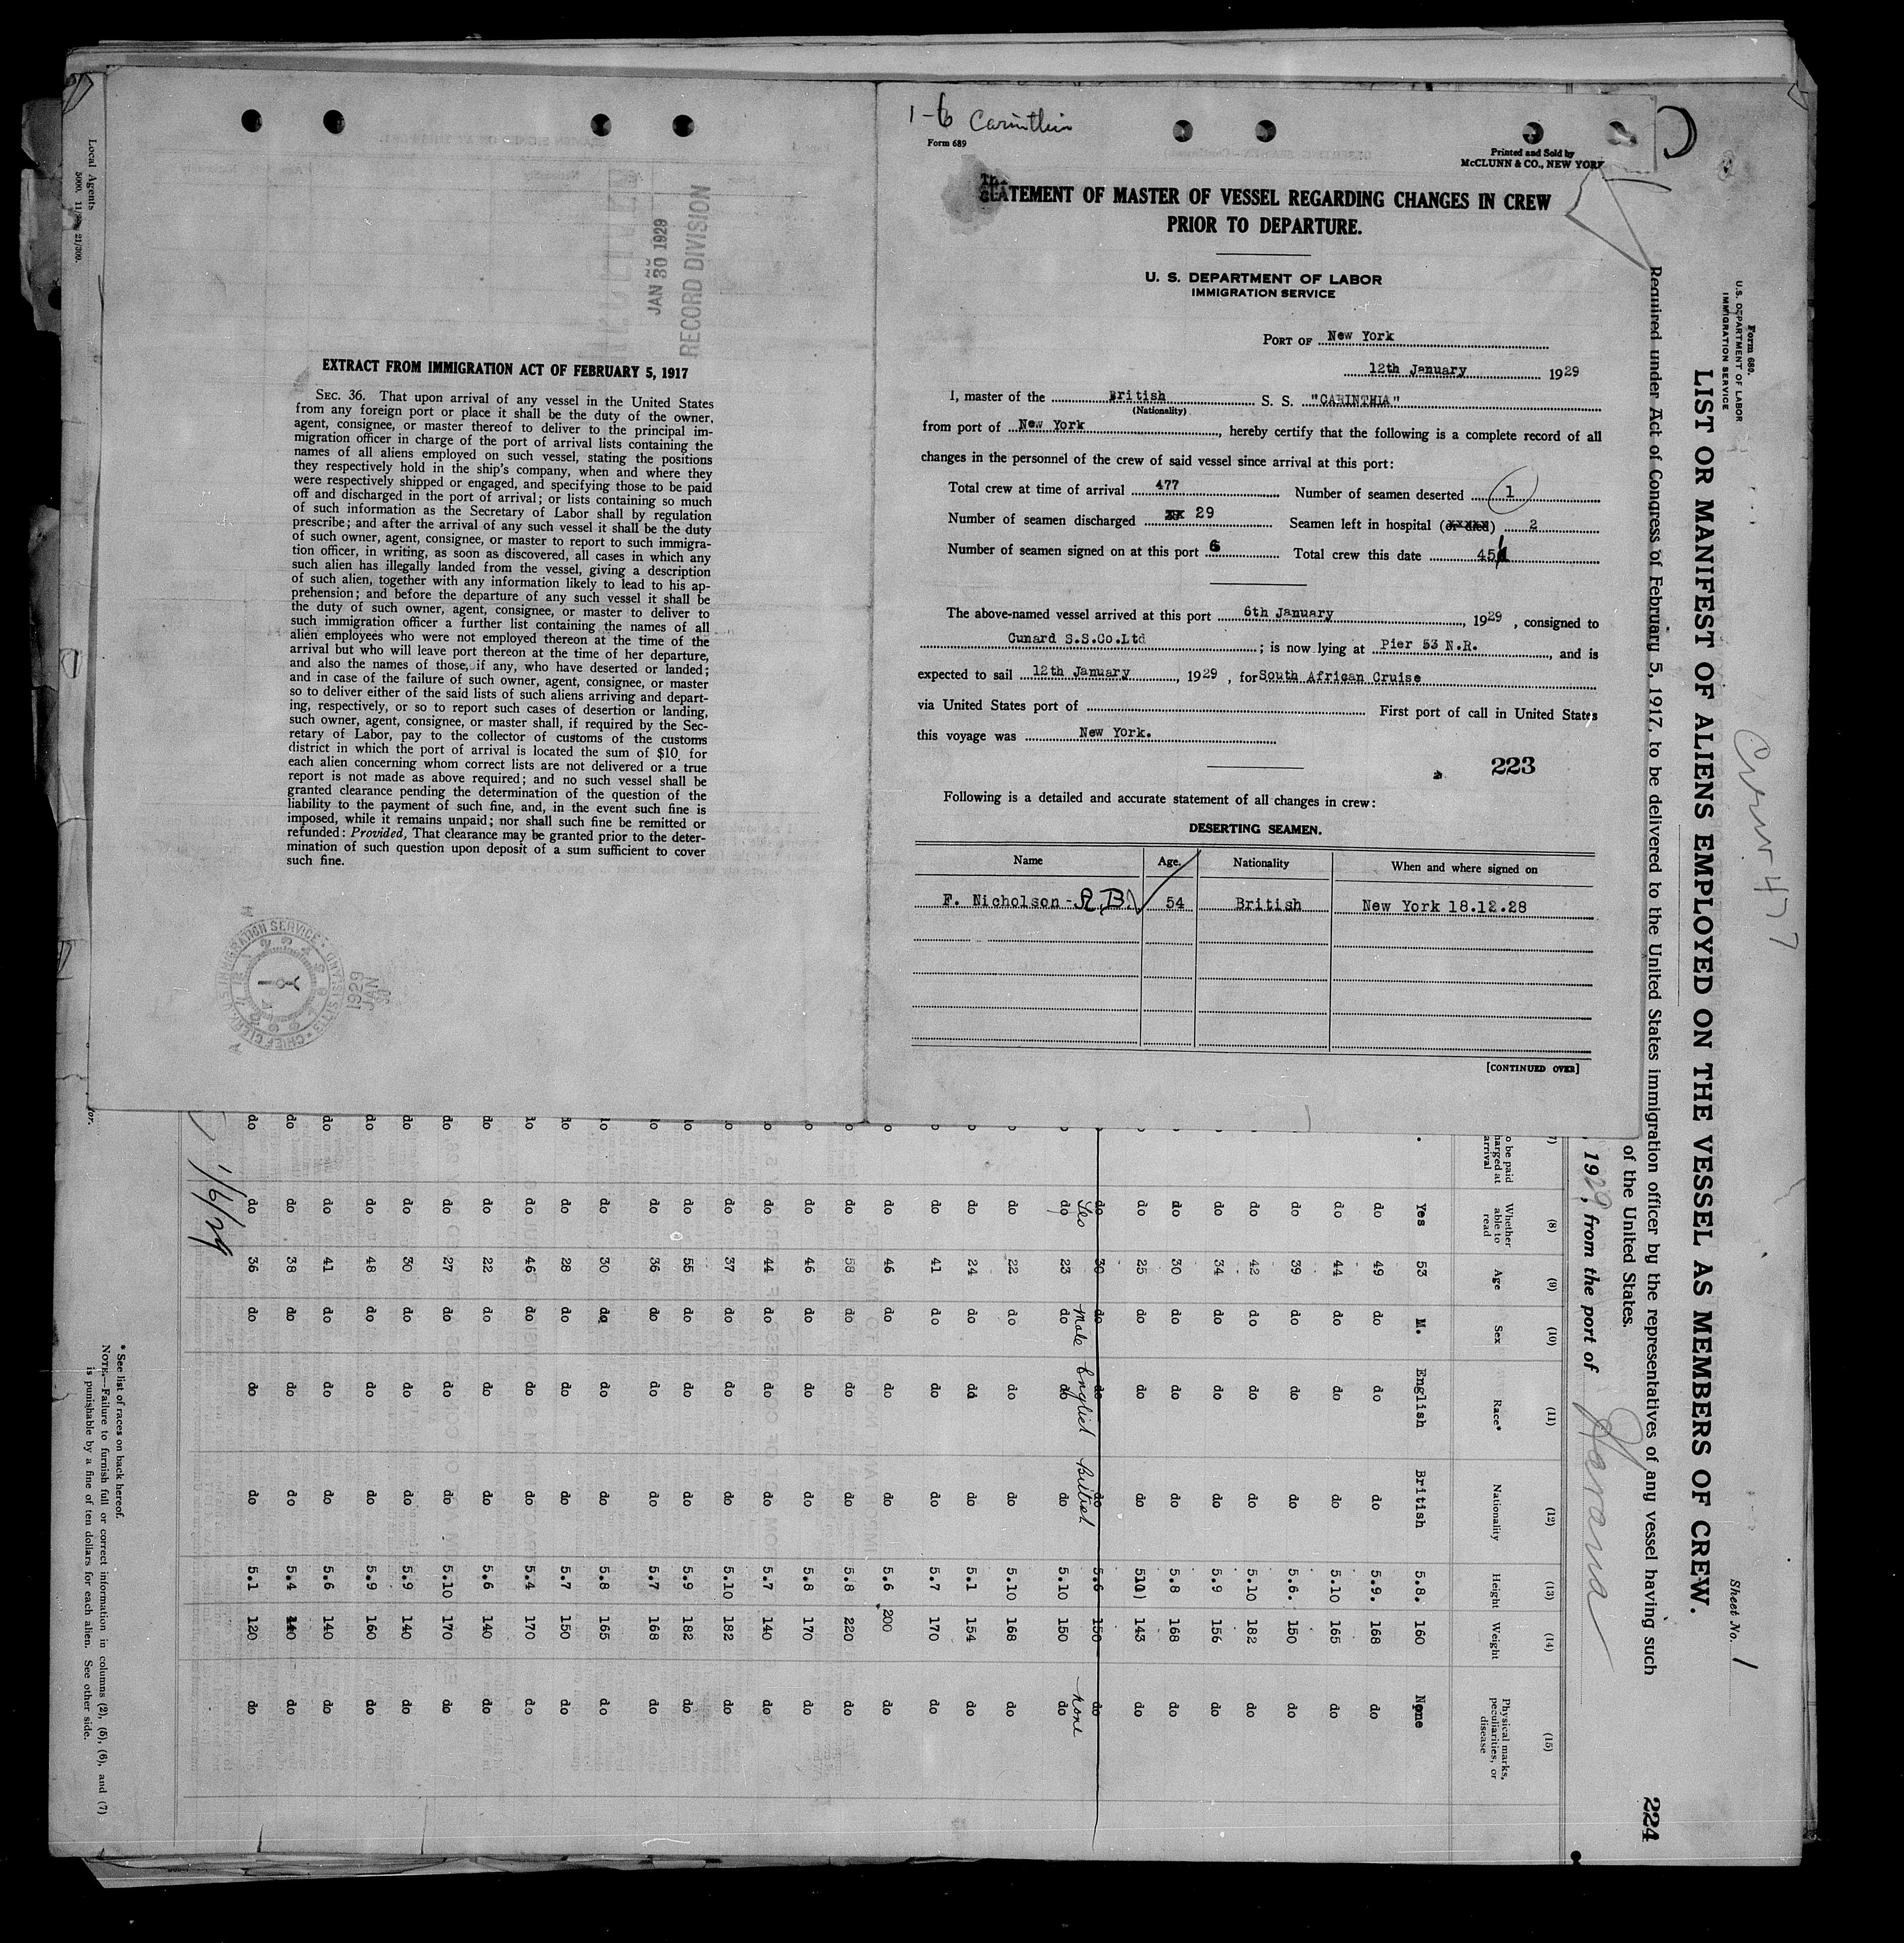 Local Agents
5000. 11/28. 21/309.
JAN 30 1929
RECORD DIVISION
EXTRACT FROM IMMIGRATION ACT OF FEBRUARY 5, 1917
SEC. 36. That upon arrival of any vessel in the United States
from any foreign port or place it shall be the duty of the owner,
agent, consignee, or master thereof to deliver to the principal im-
migration officer in charge of the port of arrival lists containing the
names of all aliens employed on such vessel, stating the positions
they respectively hold in the ship's company, when and where they
were respectively shipped or engaged, and specifying those to be paid
off and discharged in the port of arrival; or lists containing so much
of such information as the Secretary of Labor shall by regulation
prescribe; and after the arrival of any such vessel it shall be the duty
of such owner, agent, consignee, or master to report to such immigra-
tion officer, in writing, as soon as discovered, all cases in which any
such alien has illegally landed from the vessel, giving a description
of such alien, together with any information likely to lead to his ap-
prehension; and before the departure of any such vessel it shall be
the duty of such owner, agent, consignee, or master to deliver to
such immigration officer a further list containing the names of all
alien employees who were not employed thereon at the time of the
arrival but who will leave port thereon at the time of her departure,
and also the names of those, if any, who have deserted or landed;
and in case of the failure of such owner, agent, consignee, or master
so to deliver either of the said lists of such aliens arriving and depart-
ing, respectively, or so to report such cases of desertion or landing,
such owner, agent, consignee, or master shall, if required by the Sec-
retary of Labor, pay to the collector of customs of the customs
district in which the port of arrival is located the sum of $10 for
each alien concerning whom correct lists are not delivered or a true
report is not made as above required; and no such vessel shall be
granted clearance pending the determination of the question of the
liability to the payment of such fine, and, in the event such fine is
imposed, while it remains unpaid; nor shall such fine be remitted or
refunded: Provided, That clearance may be granted prior to the deter-
mination of such question upon deposit of a sum sufficient to cover
such fine.
CHIEF CLERK U.S. IMMIGRATION SERVICE ELLIS ISLAND
1929 JAN 30
1-6 Carinthia
Form 689
Printed and Sold by
McCLUNN & CO., NEW YORK
STATEMENT OF MASTER OF VESSEL REGARDING CHANGES IN CREW
PRIOR TO DEPARTURE.
U. S. DEPARTMENT OF LABOR
IMMIGRATION SERVICE
PORT OF New York
12th January 1929
I, master of the British S. S. "CARINTHIA"
(Nationality)
from port of New York, hereby certify that the following is a complete record of all
changes in the personnel of the crew of said vessel since arrival at this port:
Total crew at time of arrival 477 Number of seamen deserted 1
Number of seamen discharged 29 Seamen left in hospital (or died) 2
Number of seamen signed on at this port 6 Total crew this date 451
The above-named vessel arrived at this port 6th January, 1929, consigned to
Cunard S.S.Co.Ltd; is now lying at Pier 53 N.R., and is
expected to sail 12th January, 1929, for South African Cruise
via United States port of First port of call in United States
this voyage was New York.
223
Following is a detailed and accurate statement of all changes in crew:
DESERTING SEAMEN.
Name Age. Nationality When and where signed on
F. Nicholson - A.B. 54 British New York 18.12.28
[CONTINUED OVER]
Form 689.
U.S. DEPARTMENT OF LABOR
IMMIGRATION SERVICE
Crew 477
Sheet No. 1
LIST OR MANIFEST OF ALIENS EMPLOYED ON THE VESSEL AS MEMBERS OF CREW.
Required under Act of Congress of February 5, 1917, to be delivered to the United States immigration officer by the representatives of any vessel having such
of the United States.
224
, 1929, from the port of Havana
o be paid
harged at
arrival
(8) (9) (10) (11) (12) (13) (14) (15)
Whether able to read Age Sex Race* Nationality Height Weight Physical marks, peculiarities, or disease
Yes 53 M. English British 5.8. 160 None
do 49 do do do 5.9. 168 do
do 44 do do do 5.10 165 do
do 39 do do do 5.6. 150 do
do 42 do do do 5.10 182 do
do 34 do do do 5.9 156 do
do 30 do do do 5.8 168 do
do 25 do do do 510) 143 do
do 30 do do do 5.6 150 do
Yes Male English British none
do 23 do do do 5.10 150 do
do 22 do do do 5.10 168 do
do 24 do do do 5.1 154 do
do 41 do do do 5.7 170 do
do 46 do do do 5.6 200 do
do 58 do do do 5.8 220 do
do 46 do do do 5.8 170 do
do 44 do do do 5.7 140 do
do 37 do do do 5.10 182 do
do 55 do do do 5.9 182 do
do 36 do do do 5.7 168 do
do 30 do do do 5.8 165 do
do 28 do do do 5.7 150 do
do 46 do do do 5.4 170 do
do 22 do do do 5.6 140 do
do 27 do do do 5.10 170 do
do 30 do do do 5.9 140 do
do 48 do do do 5.9 160 do
do 41 do do do 5.6 140 do
do 38 do do do 5.4 140 do
do 36 do do do 5.1 120 do
1/6/29
* See list of races on back hereof.
NOTE.—Failure to furnish full or correct information in columns (2), (5), (6), and (7)
is punishable by a fine of ten dollars for each alien. See other side.